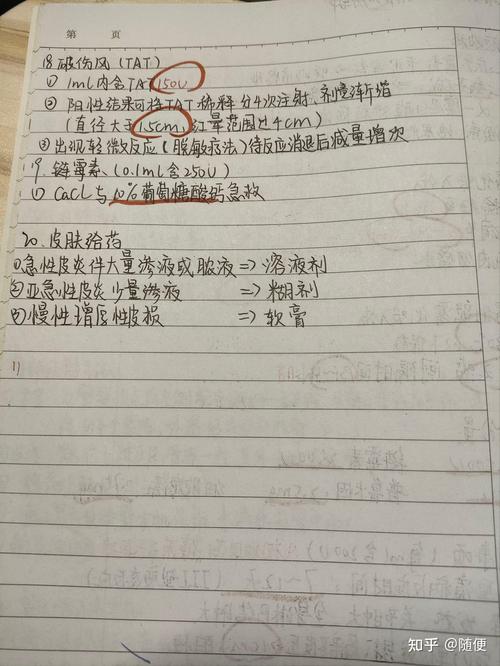 第 页
18. 破伤风（TAT）
① 1ml内含TAT 150U
② 阳性结果可将TAT稀释分4次注射，剂量渐增
（直径大于1.5cm，红晕范围过4cm）
③ 出现轻微反应（脱敏疗法）待反应消退后减量增次
19. 链霉素、（0.1ml含250U）
① CaCl与10%葡萄糖酸钙急救
20. 皮肤给药
①急性皮炎伴大量渗液或脓液 => 溶液剂
②亚急性皮炎少量渗液 => 糊剂
③慢性增厚性皮损 => 软膏
知乎 @随便